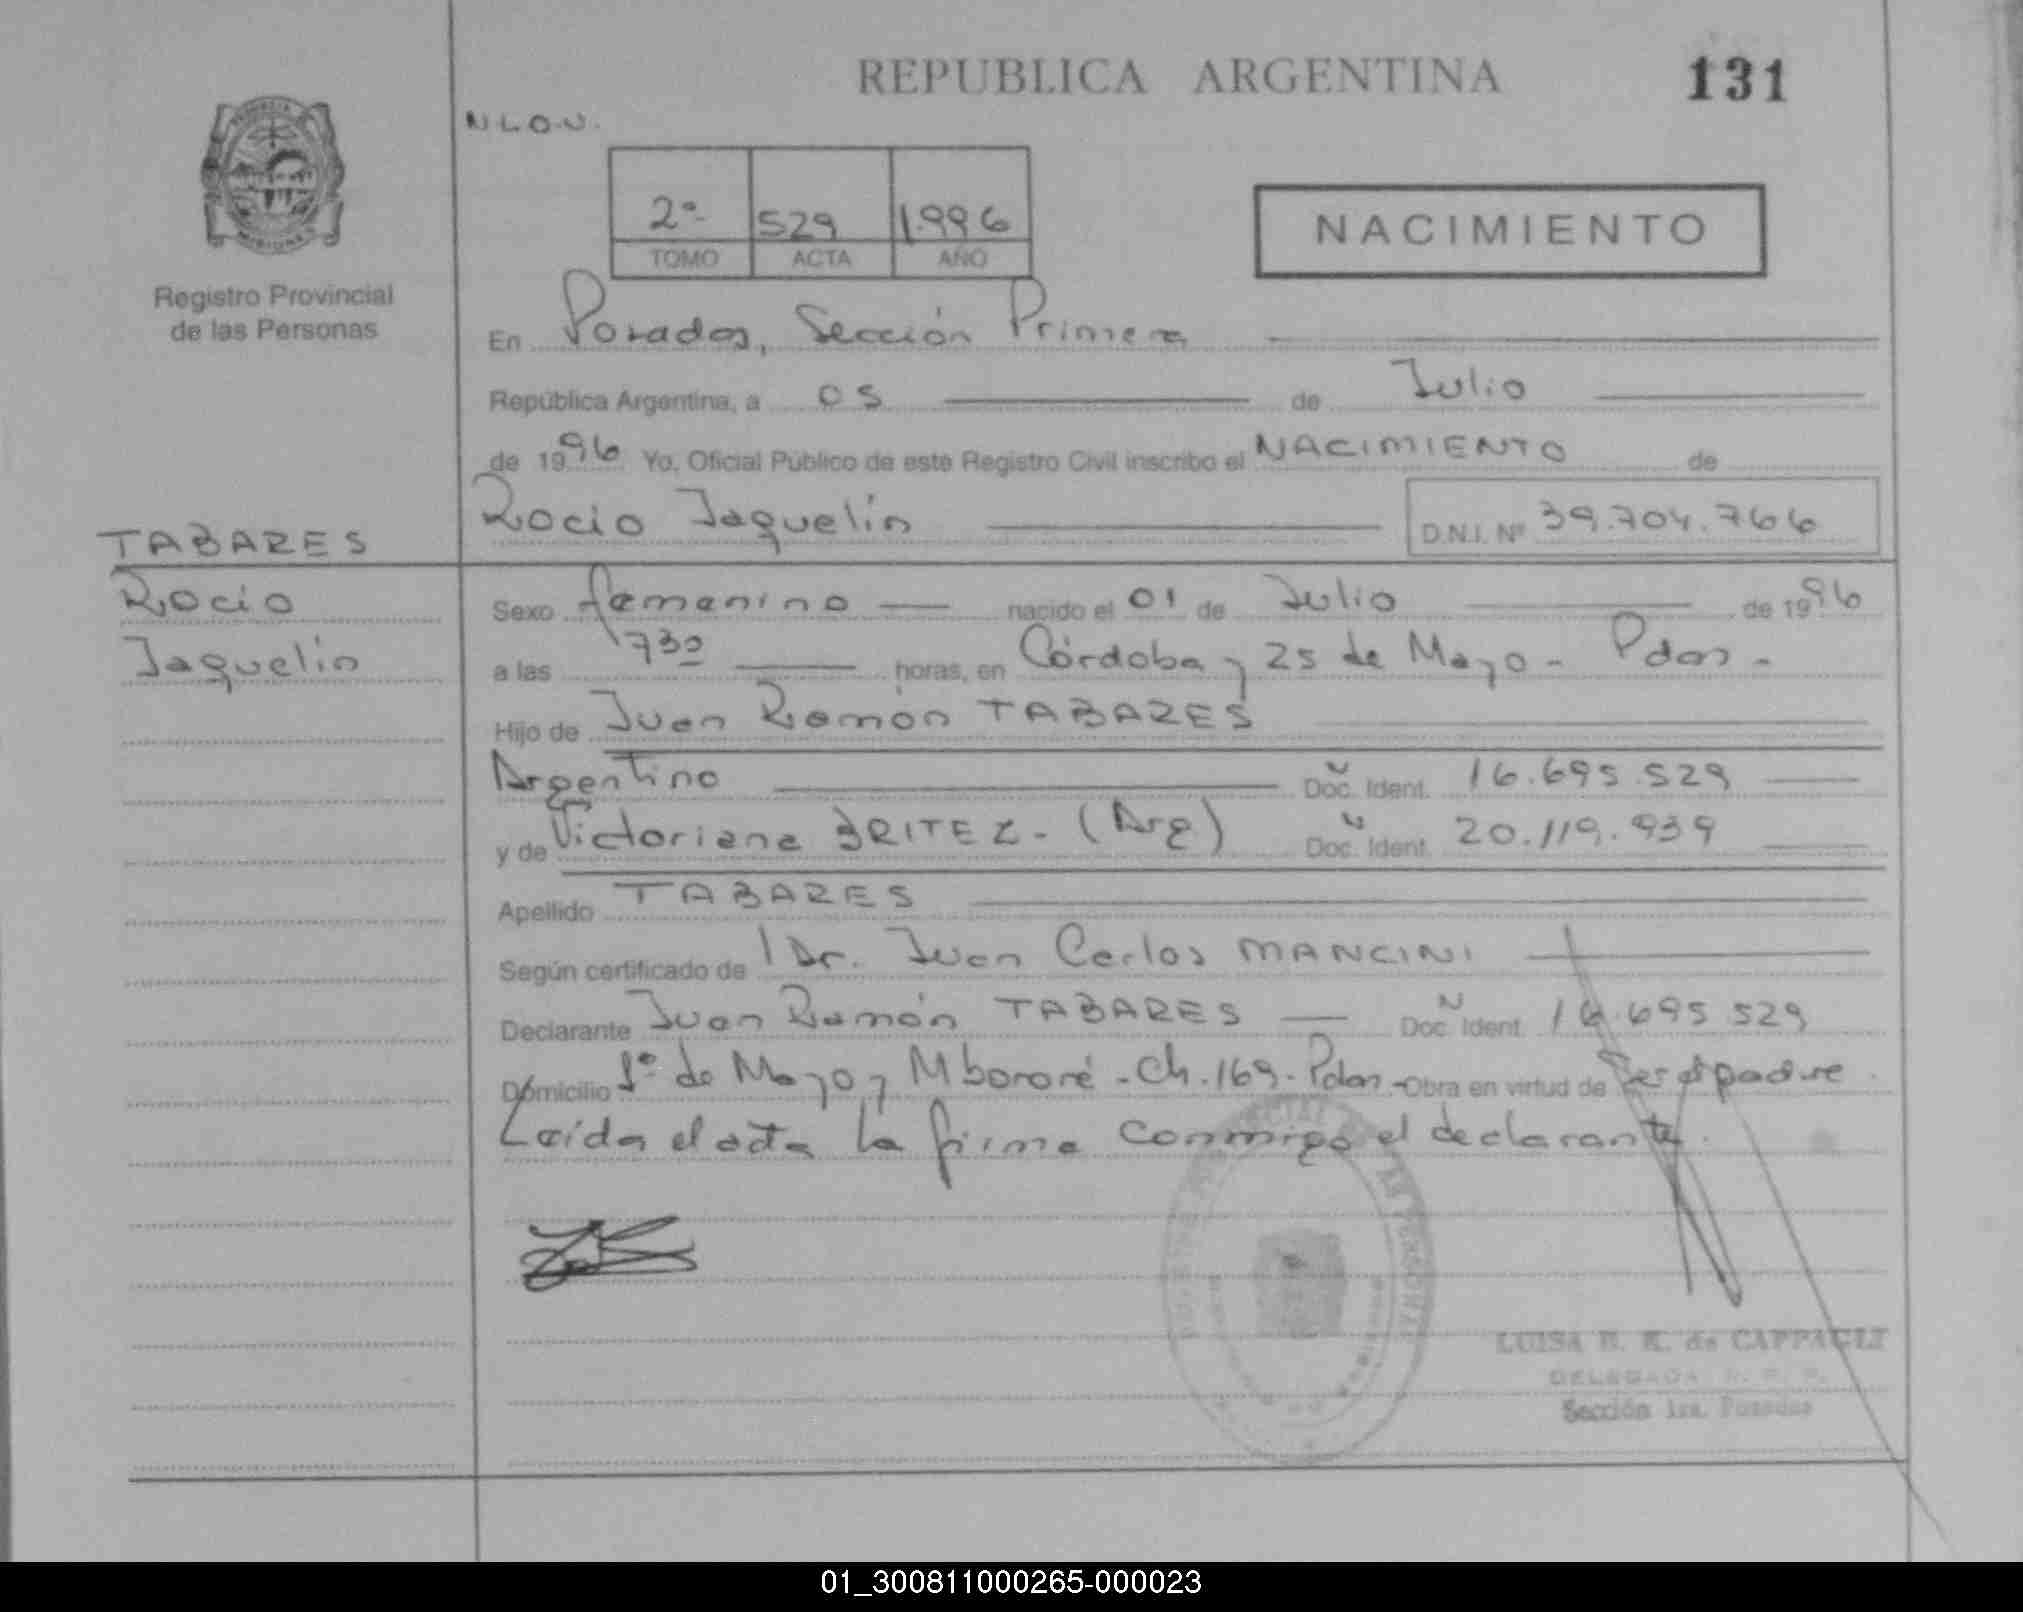 REPUBLICA ARGENTINA
131
N.L.O.U.
2º 529 1.996
TOMO ACTA AÑO
NACIMIENTO
Registro Provincial
de las Personas
En Posadas, Sección Primera
República Argentina, a 05 de Julio
de 1996 Yo, Oficial Público de este Registro Civil inscribo el NACIMIENTO de
Rocio Jaquelin D.N.I. Nº 39.704.766
TABARES
Rocio
Jaquelin
Sexo femenino nacido el 01 de Julio de 1996
a las 730 horas, en Córdoba y 25 de Mayo - Pdas.-
Hijo de Juan Ramón TABARES
Argentino Doc. Ident. 16.695.529
y de Victoriana BRITEZ - (Arg) Doc. Ident. 20.119.939
Apellido TABARES
Según certificado de Dr. Juan Carlos MANCINI
Declarante Juan Ramón TABARES Doc. Ident. 16.695.529
Domicilio 1º de Mayo y Mbororé - Ch. 169 - Pdas.- Obra en virtud de ser el padre.
Leída el acta la firma conmigo el declarante.
LUISA E. K. de CAPPAGLI
DELEGADA R. P. P.
Sección 1ra. Posadas
01_300811000265-000023